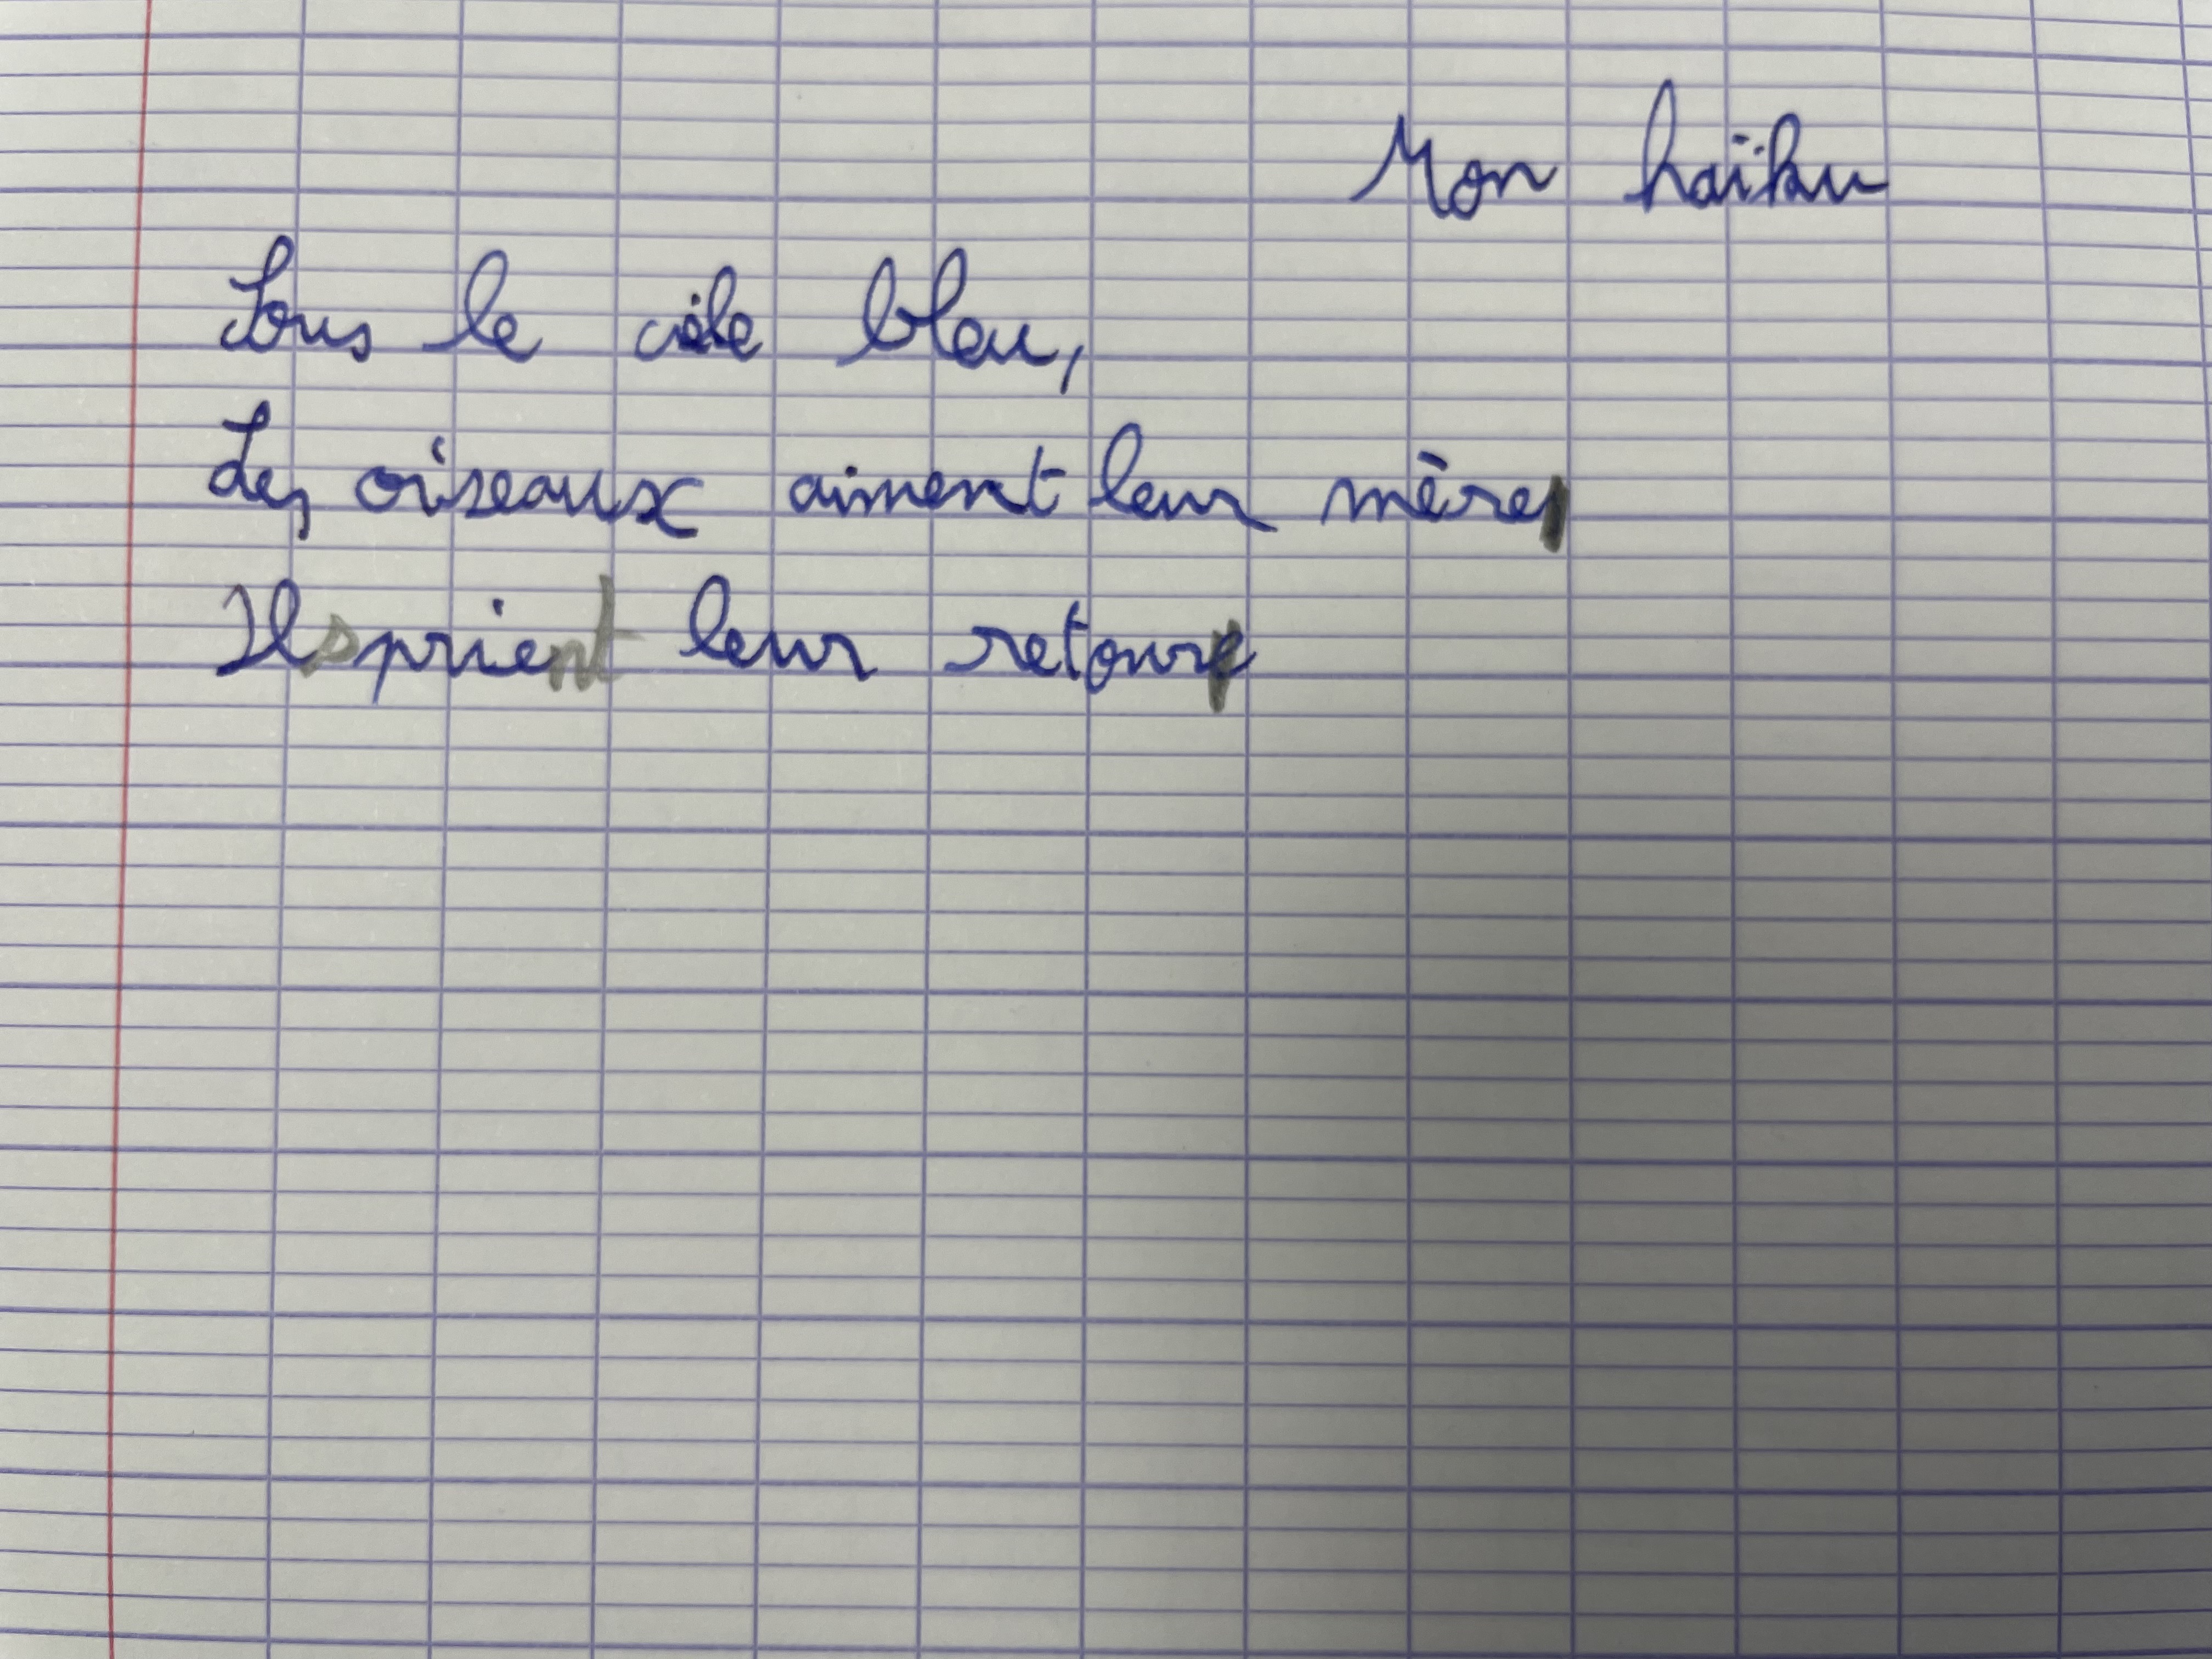 Mon haïku
Sous le ciele bleu,
Les oiseaux aiment leur mère,
Ils prient leur retour